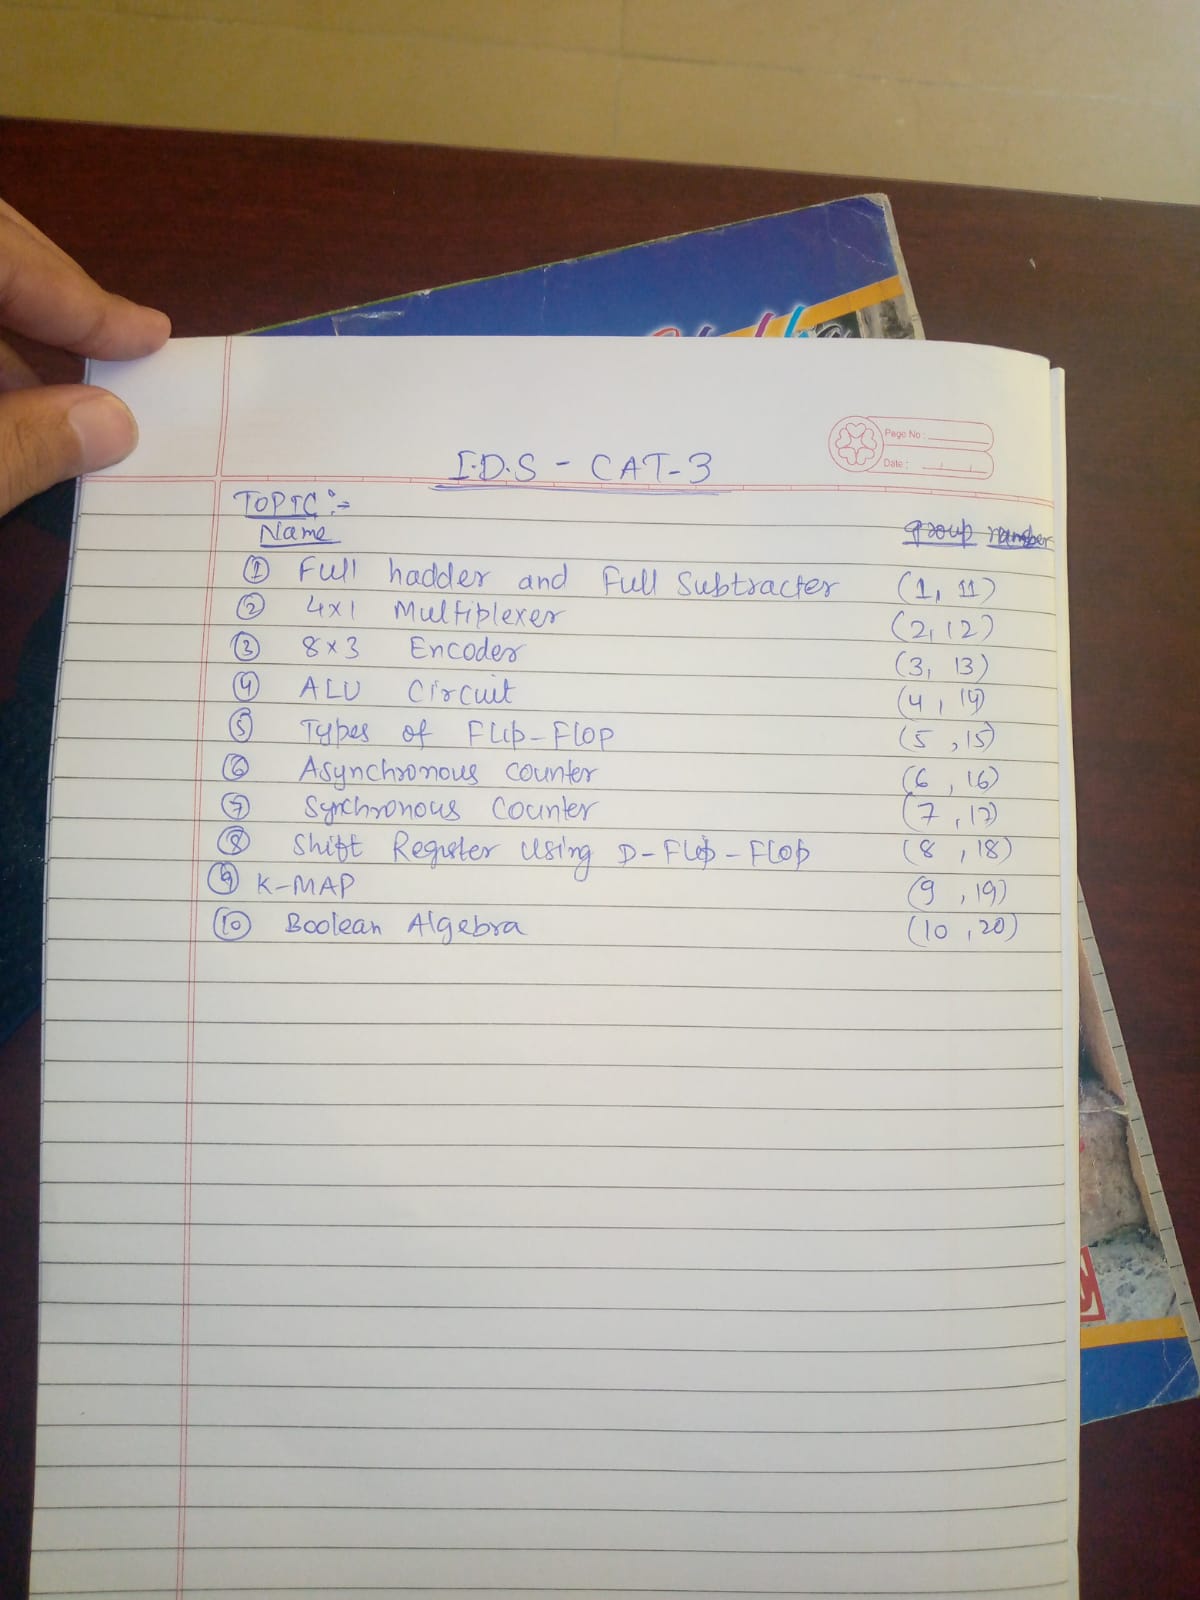 Page No :
Date :
I.D.S - CAT-3
TOPIC :-
Name group number
① Full hadder and Full Subtracter (1, 11)
② 4x1 Multiplexer (2, 12)
③ 8x3 Encoder (3, 13)
④ ALU Circuit (4, 14)
⑤ Types of Flip-Flop (5, 15)
⑥ Asynchronous counter (6, 16)
⑦ Synchronous Counter (7, 17)
⑧ Shift Register using D-Flip-Flop (8, 18)
⑨ K-MAP (9, 19)
⑩ Boolean Algebra (10, 20)